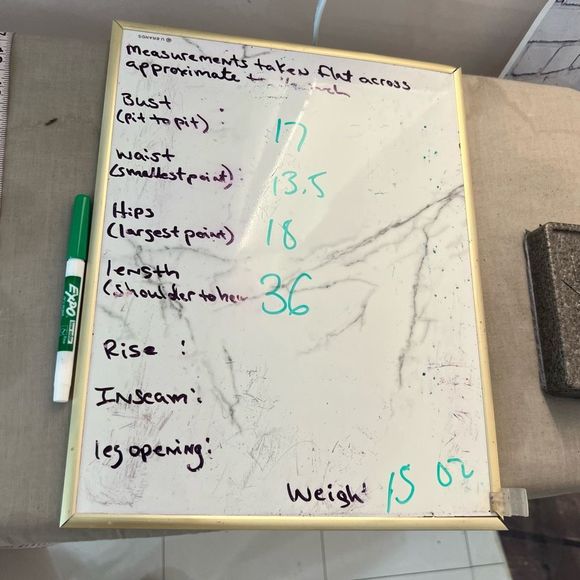 U BRANDS
measurements taken flat across
approximate
Bust :
(pit to pit) 17
waist
(smallest point): 13.5
Hips
(largest point) 18
length
(shoulder to hem 36
Rise :
Inseam:
leg opening:
Weigh: 15 oz
EXPO